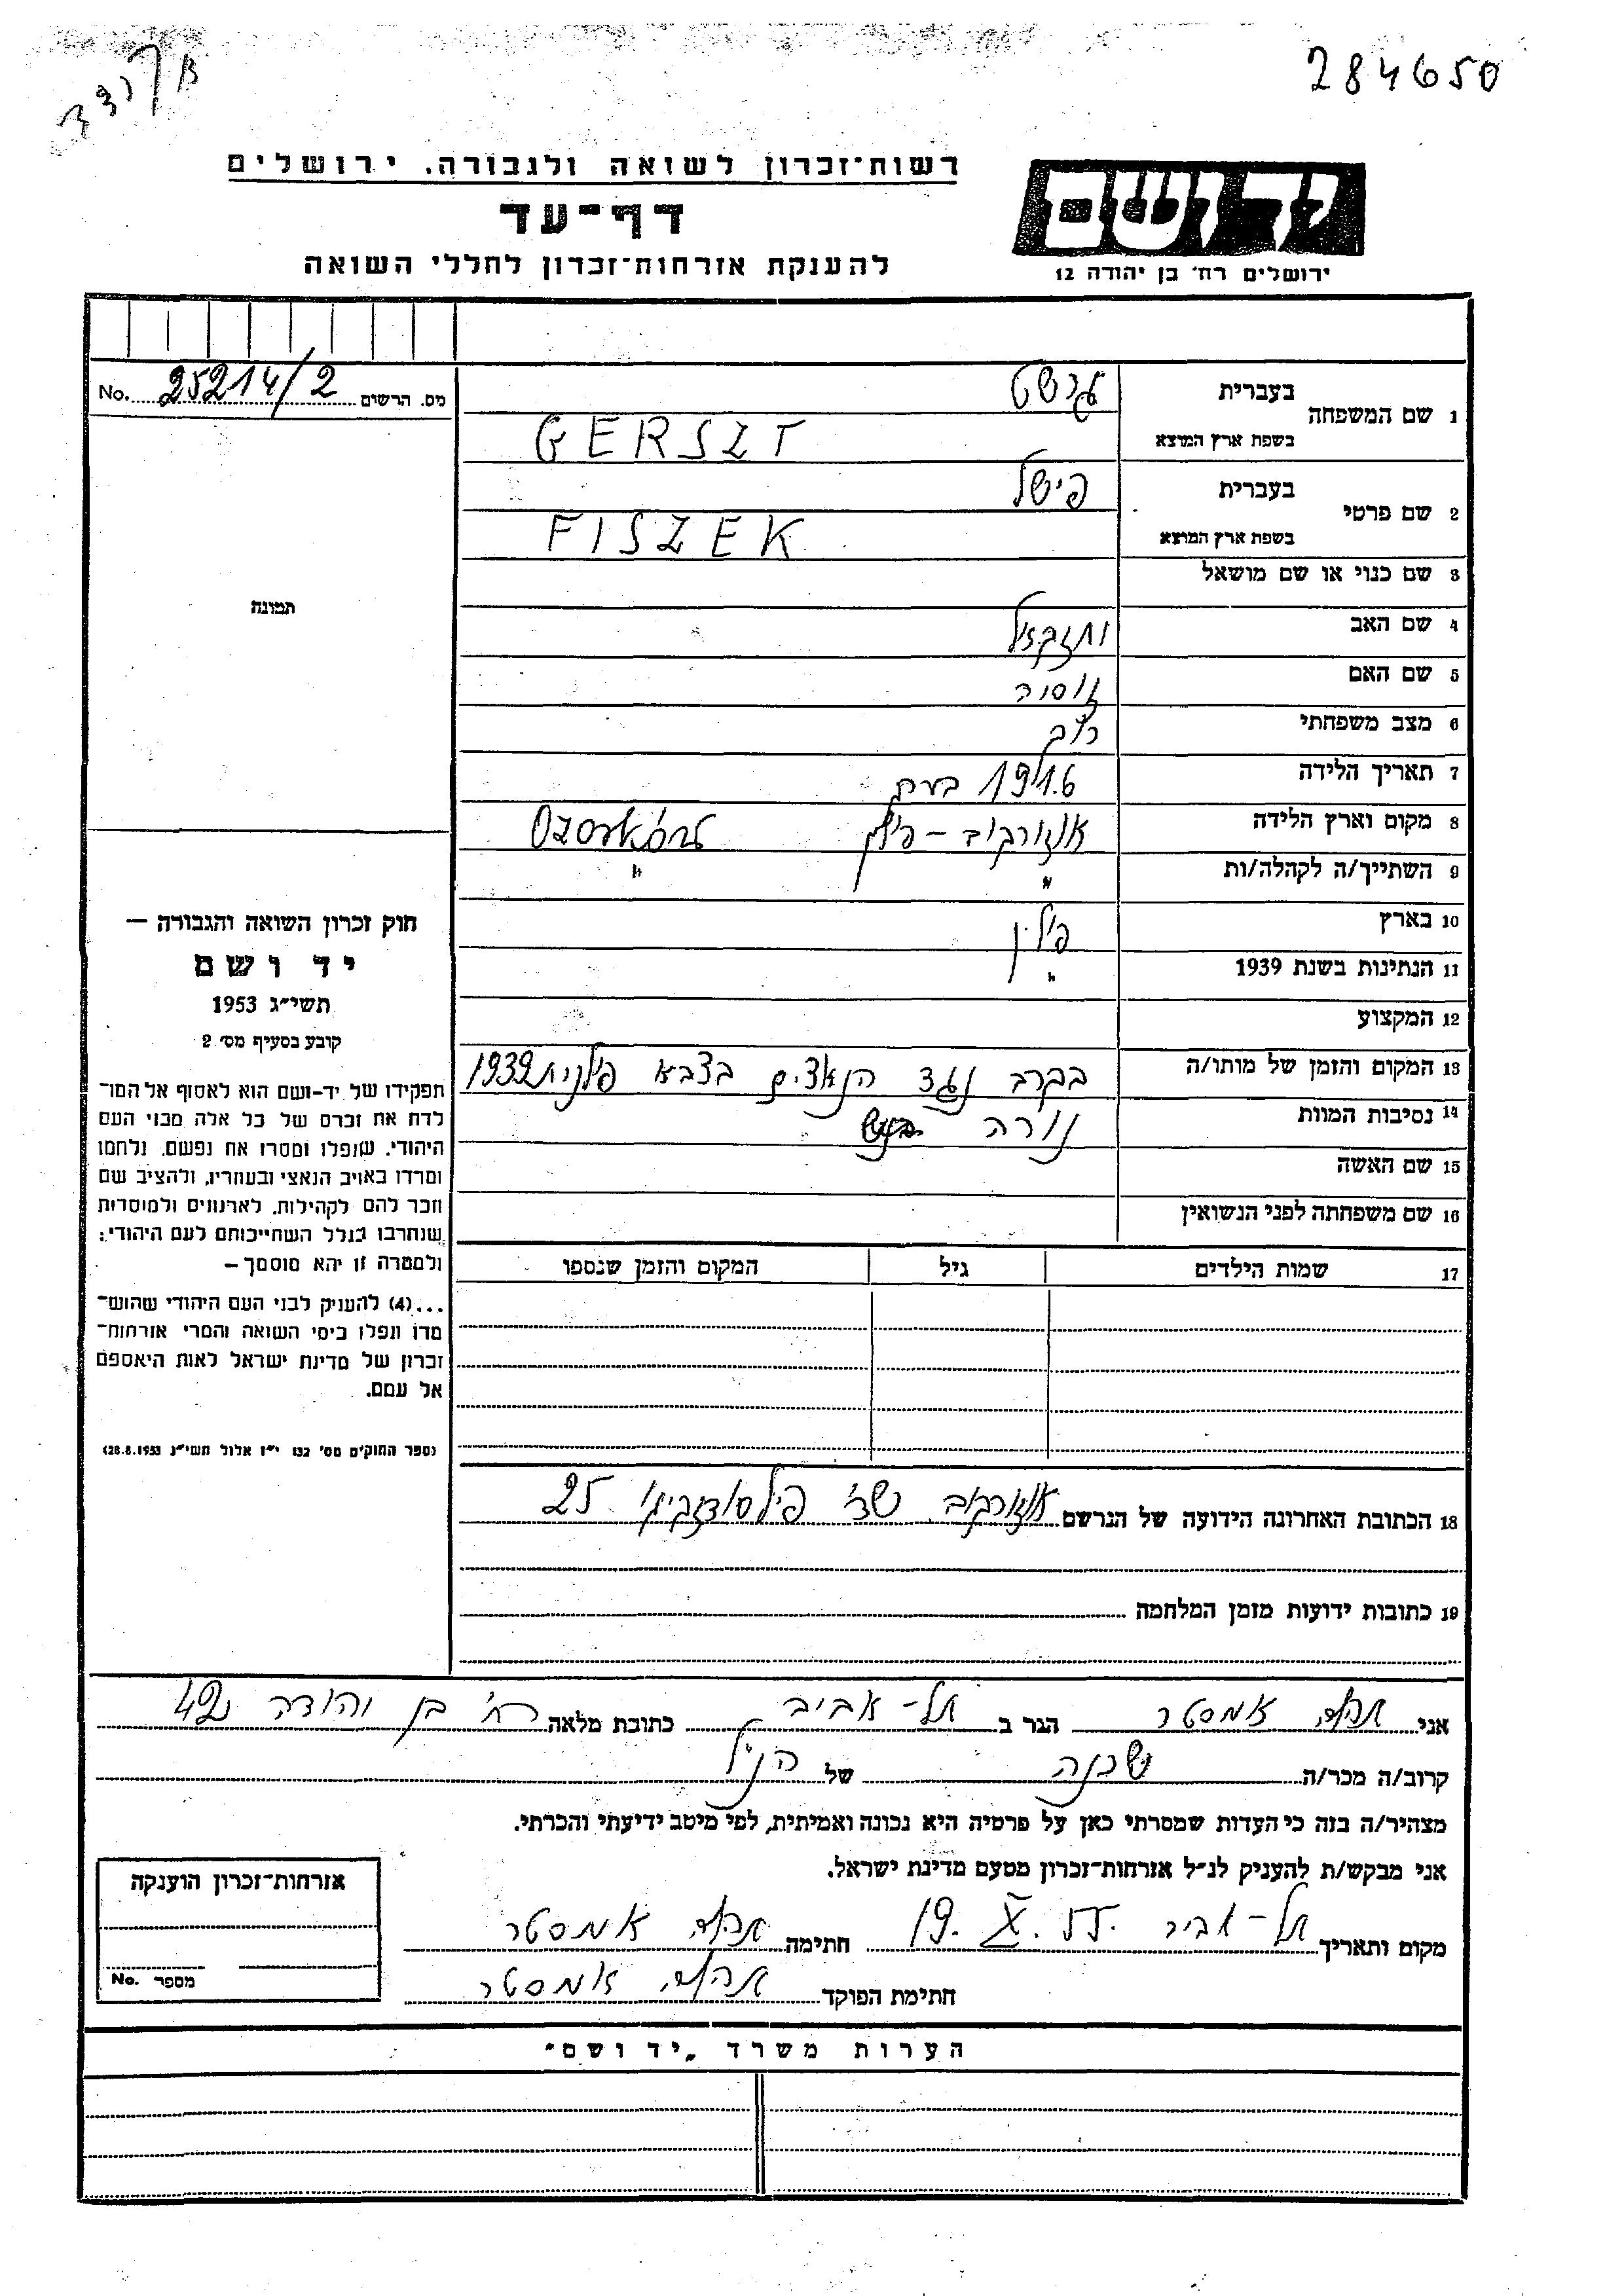 284650
רשות־זכרון לשואה ולגבורה. ירושלים
יד ושם
דף־עד
להענקת אזרחות־זכרון לחללי השואה
ירושלים רח׳ בן יהודה 12
מס. הרשום 25214/2 No.
1 שם המשפחה בעברית גרשט
בשפת ארץ המוצא GERSZT
2 שם פרטי בעברית פישל
בשפת ארץ המוצא FISZEK
3 שם כנוי או שם מושאל
4 שם האב יחזקאל
5 שם האם
6 מצב משפחתי רוב
7 תאריך הלידה 1916 בערך
8 מקום וארץ הלידה אוזורקוב – פולין
9 השתייך/ה לקהלה/ות " "
10 בארץ פולין
11 הנתינות בשנת 1939 "
12 המקצוע
13 המקום והזמן של מותו/ה בקרב נגד הנאצים בצבא פולנית 1939
14 נסיבות המוות נורה
15 שם האשה
16 שם משפחתה לפני הנשואין
17 שמות הילדים גיל המקום והזמן שנספו
תמונה
חוק זכרון השואה והגבורה –
יד ושם
תשי״ג 1953
קובע בסעיף מס׳ 2
תפקידו של יד־ושם הוא לאסוף אל המו־
לדת את זכרם של כל אלה מבני העם
היהודי, שנפלו ומסרו את נפשם, נלחמו
ומרדו באויב הנאצי ובעוזריו, ולהציב שם
וזכר להם לקהילות, לארגונים ולמוסדות
שנחרבו בגלל השתייכותם לעם היהודי;
ולמטרה זו יהא מוסמך –
...(4) להעניק לבני העם היהודי שהוש־
מדו ונפלו בימי השואה והמרי אזרחות־
זכרון של מדינת ישראל לאות היאספם
אל עמם.
(ספר החוקים מס׳ 132 י״ז אלול תשי״ג 28.8.1953)
18 הכתובת האחרונה הידועה של הנרשם אוזורקוב שד׳ פילסודצקיגו 25
19 כתובות ידועות מזמן המלחמה
אני אמסטר הגר ב תל–אביב כתובת מלאה רח׳ בן יהודה 42
קרוב/ה מכר/ה שכנה של הנ״ל
מצהיר/ה בזה כי העדות שמסרתי כאן על פרטיה היא נכונה ואמיתית, לפי מיטב ידיעתי והכרתי.
אני מבקש/ת להעניק לנ״ל אזרחות־זכרון מטעם מדינת ישראל.
מקום ותאריך תל–אביב 19. X. 55 חתימה אמסטר
חתימת הפוקד אמסטר
אזרחות־זכרון הוענקה
מספר No.
הערות משרד „יד ושם״